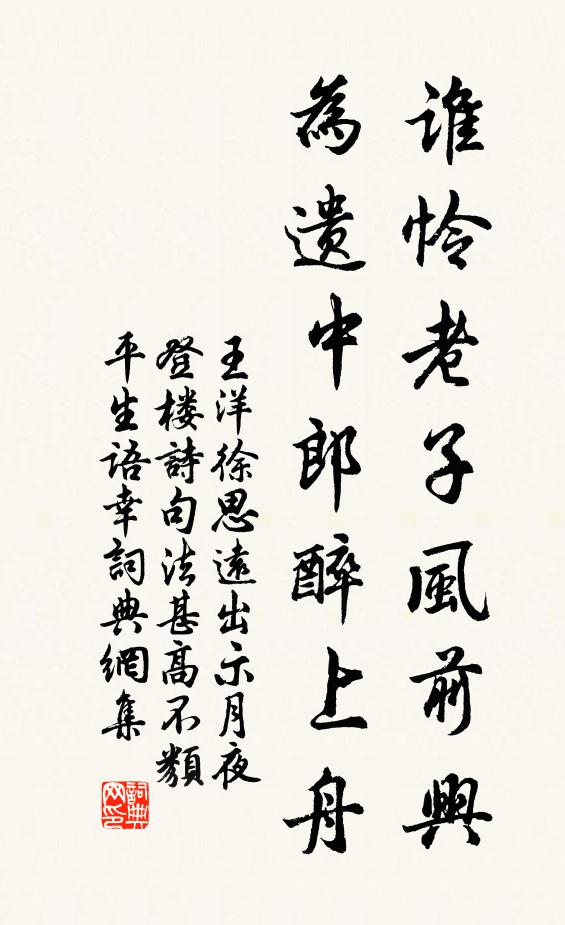 誰怜老子風前興
為遺中郎醉上舟
王洋徐思遠出示月夜
登楼詩句法甚高不類
平生语幸詞典網集
詞典
网印